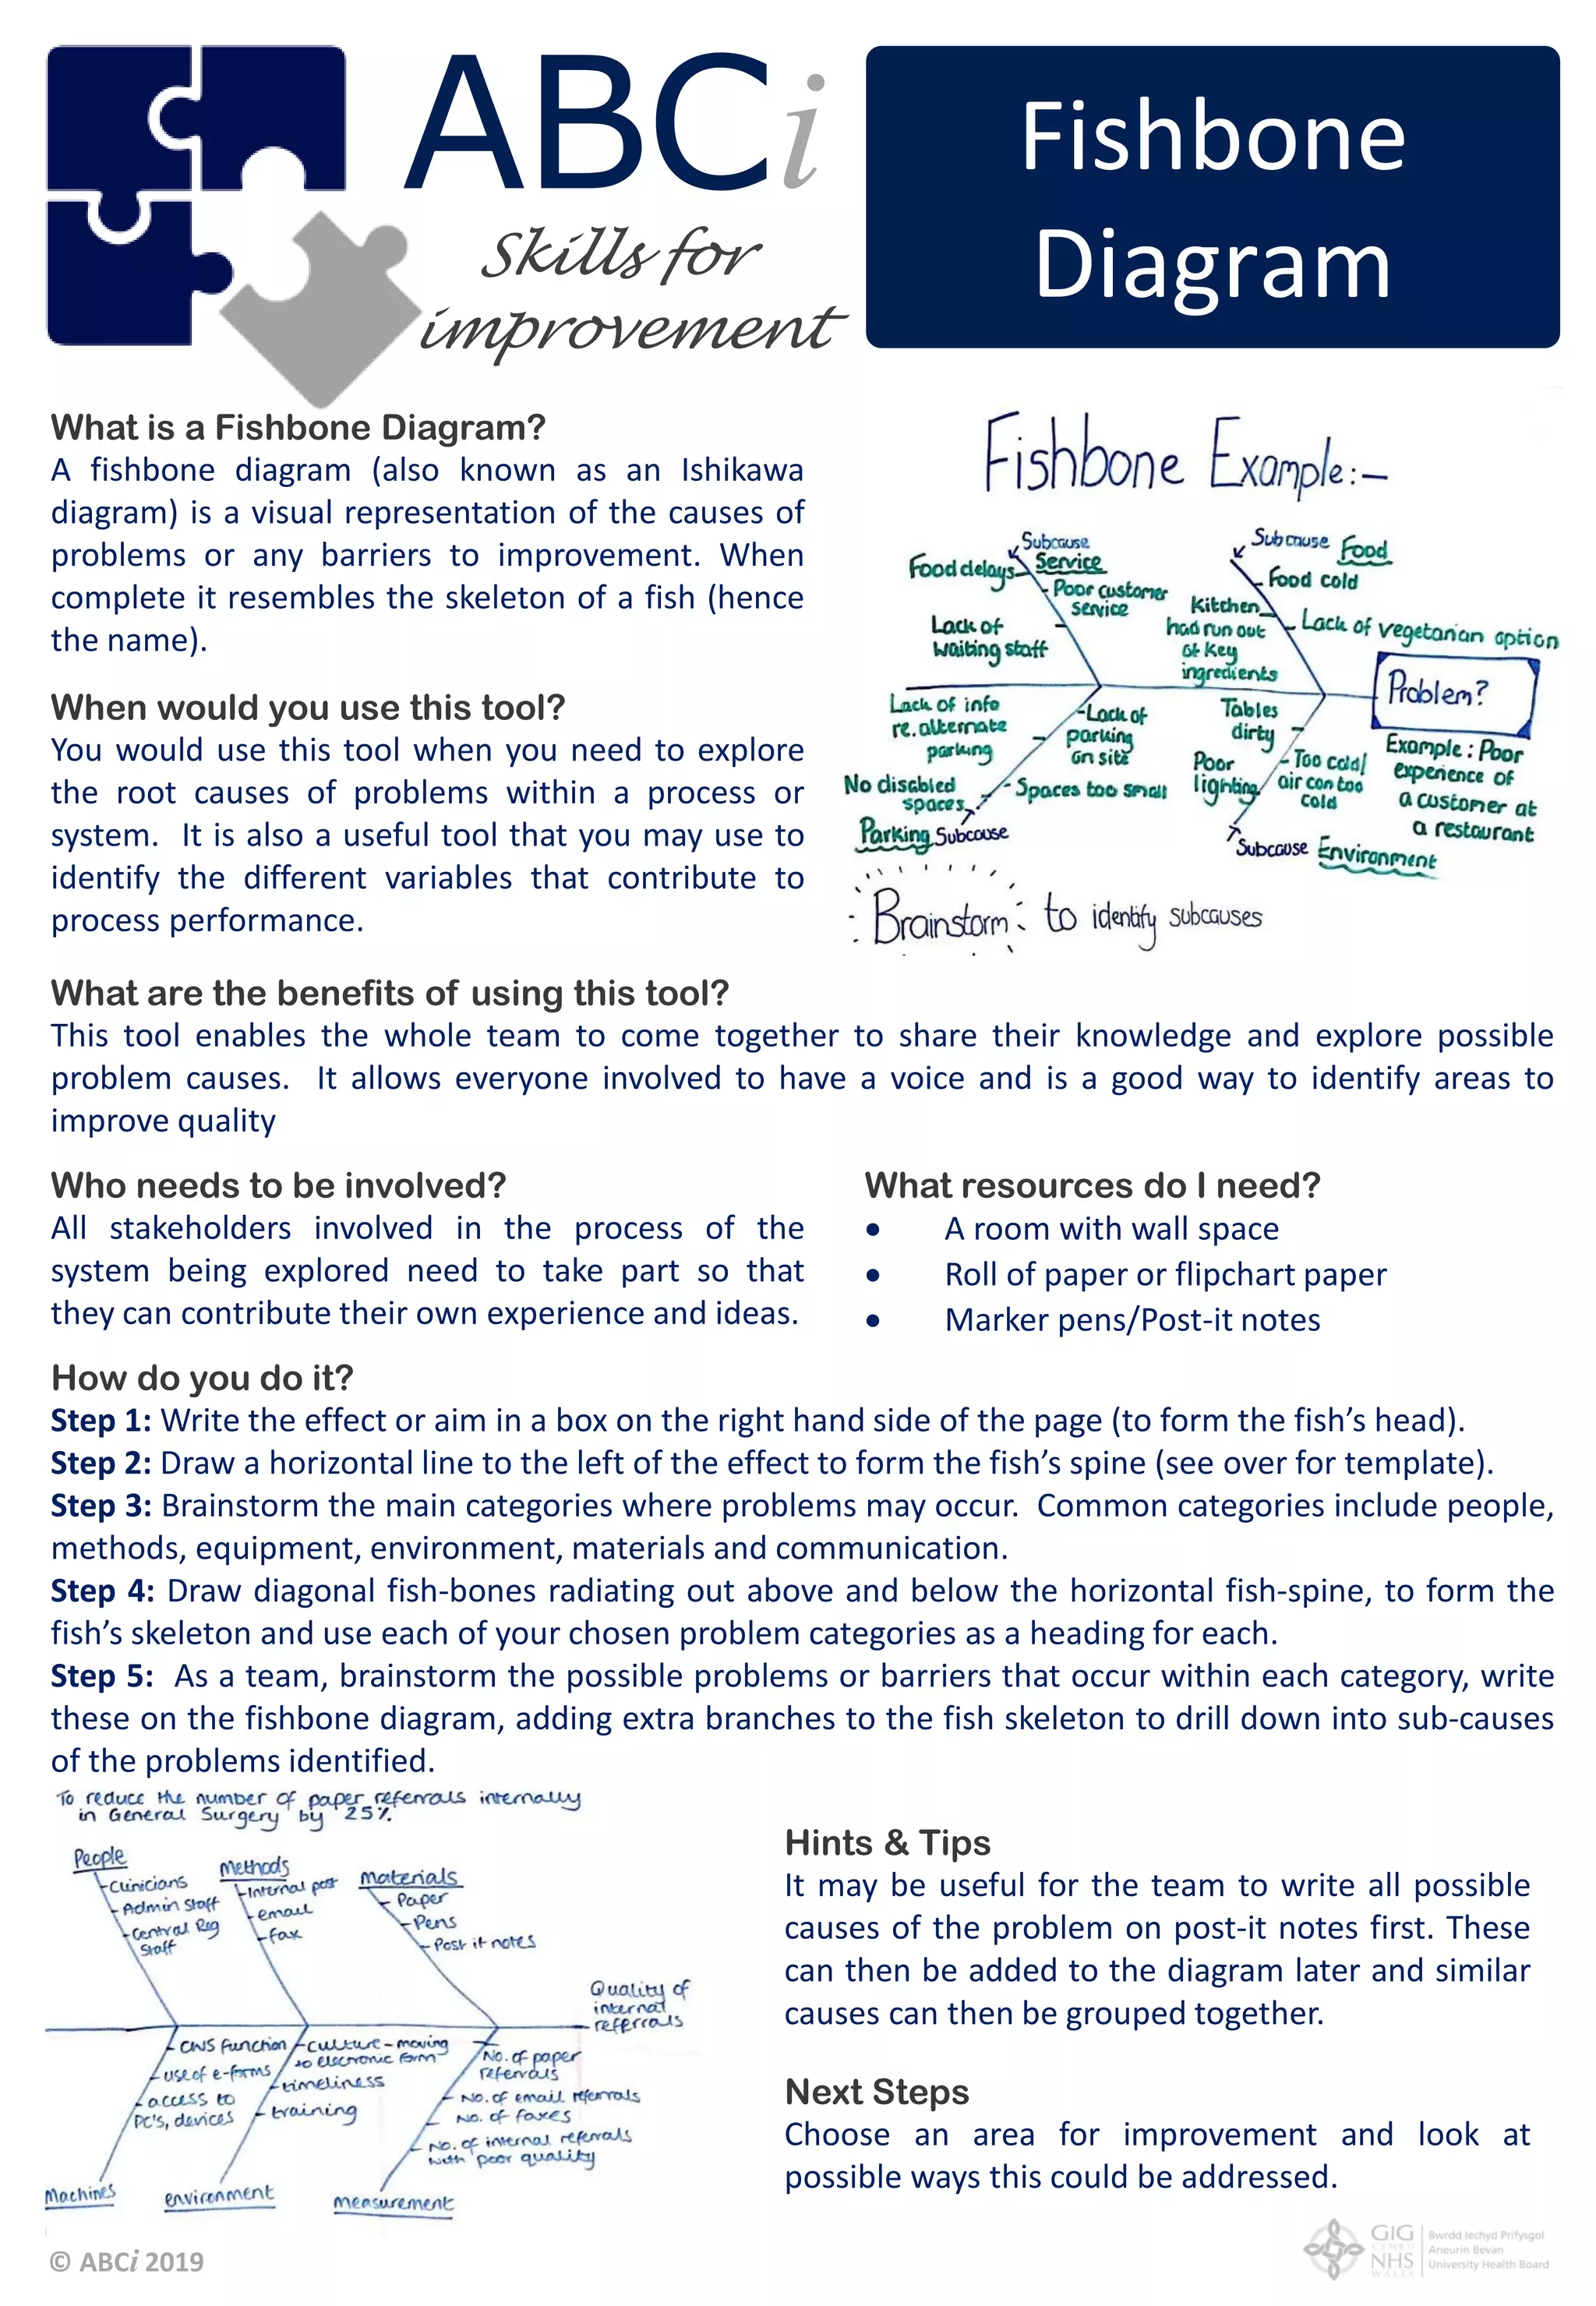 ABCi
Skills for
improvement
Fishbone
Diagram
What is a Fishbone Diagram?
A fishbone diagram (also known as an Ishikawa
diagram) is a visual representation of the causes of
problems or any barriers to improvement. When
complete it resembles the skeleton of a fish (hence
the name).
When would you use this tool?
You would use this tool when you need to explore
the root causes of problems within a process or
system. It is also a useful tool that you may use to
identify the different variables that contribute to
process performance.
Fishbone Example:-
Subcause
Service
Food delays
Poor customer
service
Lack of
waiting staff
Subcause Food
Food cold
Kitchen
had run out
of key
ingredients
Lack of vegetarian option
Problem?
Example: Poor
experience of
a customer at
a restaurant
Lack of info
re. alternate
parking
-Lack of
parking
on site
No disabled
spaces
Spaces too small
Parking Subcause
Tables
dirty
Poor
lighting
Too cold/
air con too
cold
Subcause Environment
Brainstorm to identify subcauses
What are the benefits of using this tool?
This tool enables the whole team to come together to share their knowledge and explore possible
problem causes. It allows everyone involved to have a voice and is a good way to identify areas to
improve quality
Who needs to be involved?
All stakeholders involved in the process of the
system being explored need to take part so that
they can contribute their own experience and ideas.
What resources do I need?
• A room with wall space
• Roll of paper or flipchart paper
• Marker pens/Post-it notes
How do you do it?
Step 1: Write the effect or aim in a box on the right hand side of the page (to form the fish’s head).
Step 2: Draw a horizontal line to the left of the effect to form the fish’s spine (see over for template).
Step 3: Brainstorm the main categories where problems may occur. Common categories include people,
methods, equipment, environment, materials and communication.
Step 4: Draw diagonal fish-bones radiating out above and below the horizontal fish-spine, to form the
fish’s skeleton and use each of your chosen problem categories as a heading for each.
Step 5: As a team, brainstorm the possible problems or barriers that occur within each category, write
these on the fishbone diagram, adding extra branches to the fish skeleton to drill down into sub-causes
of the problems identified.
To reduce the number of paper referrals internally
in General Surgery by 25%.
People
Clinicians
Admin Staff
Central Reg
Staff
Methods
Internal post
email
fax
Materials
Paper
Pens
Post it notes
Quality of
internal
referrals
CWS function
use of e-forms
access to
PC's, devices
Machines
culture - moving
to electronic form
timeliness
training
environment
No. of paper
referrals
No. of email referrals
No. of faxes
No. of internal referrals
with poor quality
measurement
Hints & Tips
It may be useful for the team to write all possible
causes of the problem on post-it notes first. These
can then be added to the diagram later and similar
causes can then be grouped together.
Next Steps
Choose an area for improvement and look at
possible ways this could be addressed.
© ABCi 2019
GIG
CYMRU
NHS
WALES
Bwrdd Iechyd Prifysgol
Aneurin Bevan
University Health Board